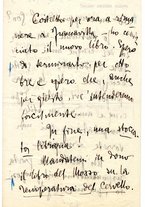 Costretto per ora a rima
nere a
mato il nuovo libro. Spero
di terminarlo per otto
bre e spero che, anche
per questo ci intenderemo
facilmente.
In fine, una stoc
cata
Mandatemi in dono
il libro del Mosso su la
temperatura del Cervello.